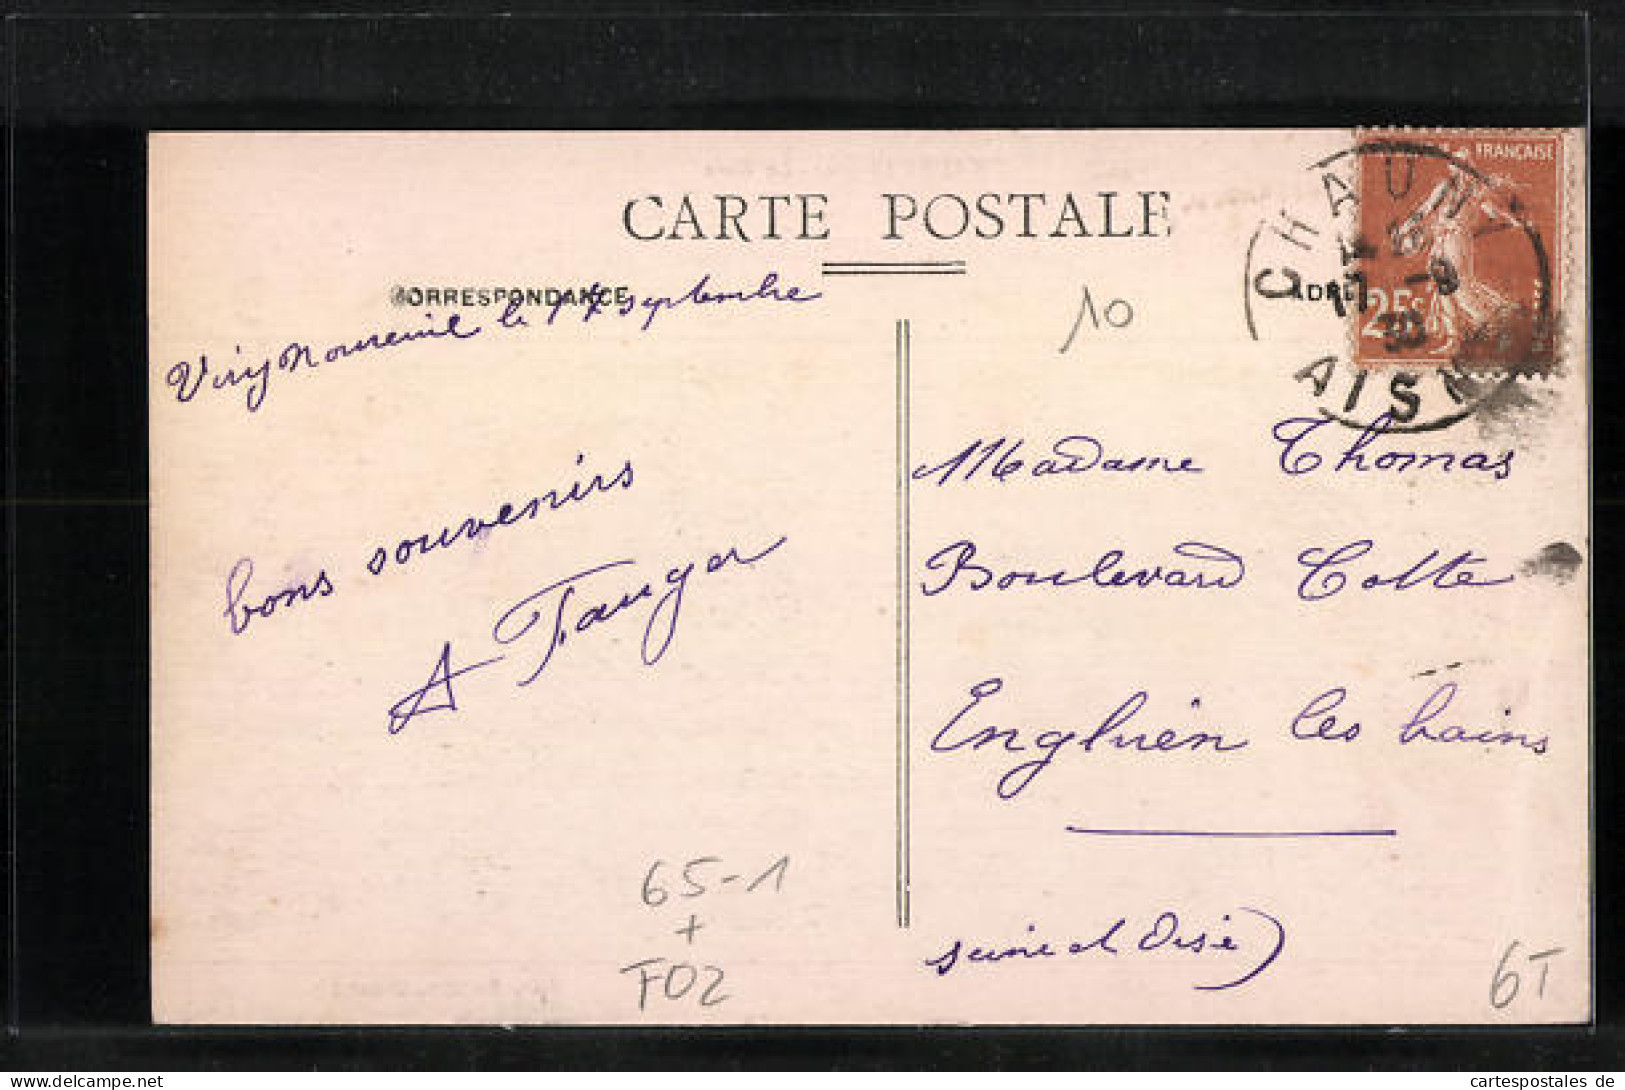 CARTE POSTALE
CORRESPONDANCE
Viry Noureuil le 14 septembre
bons souvenirs
A Tanger
10
FRANÇAISE
25c
CHAUNY
17 -9
30
AISNE
ADRE
Madame Thomas
Boulevard Cotte
Enghien les bains
seine et Oise)
65-1
+
F02
6T
cartespostales de